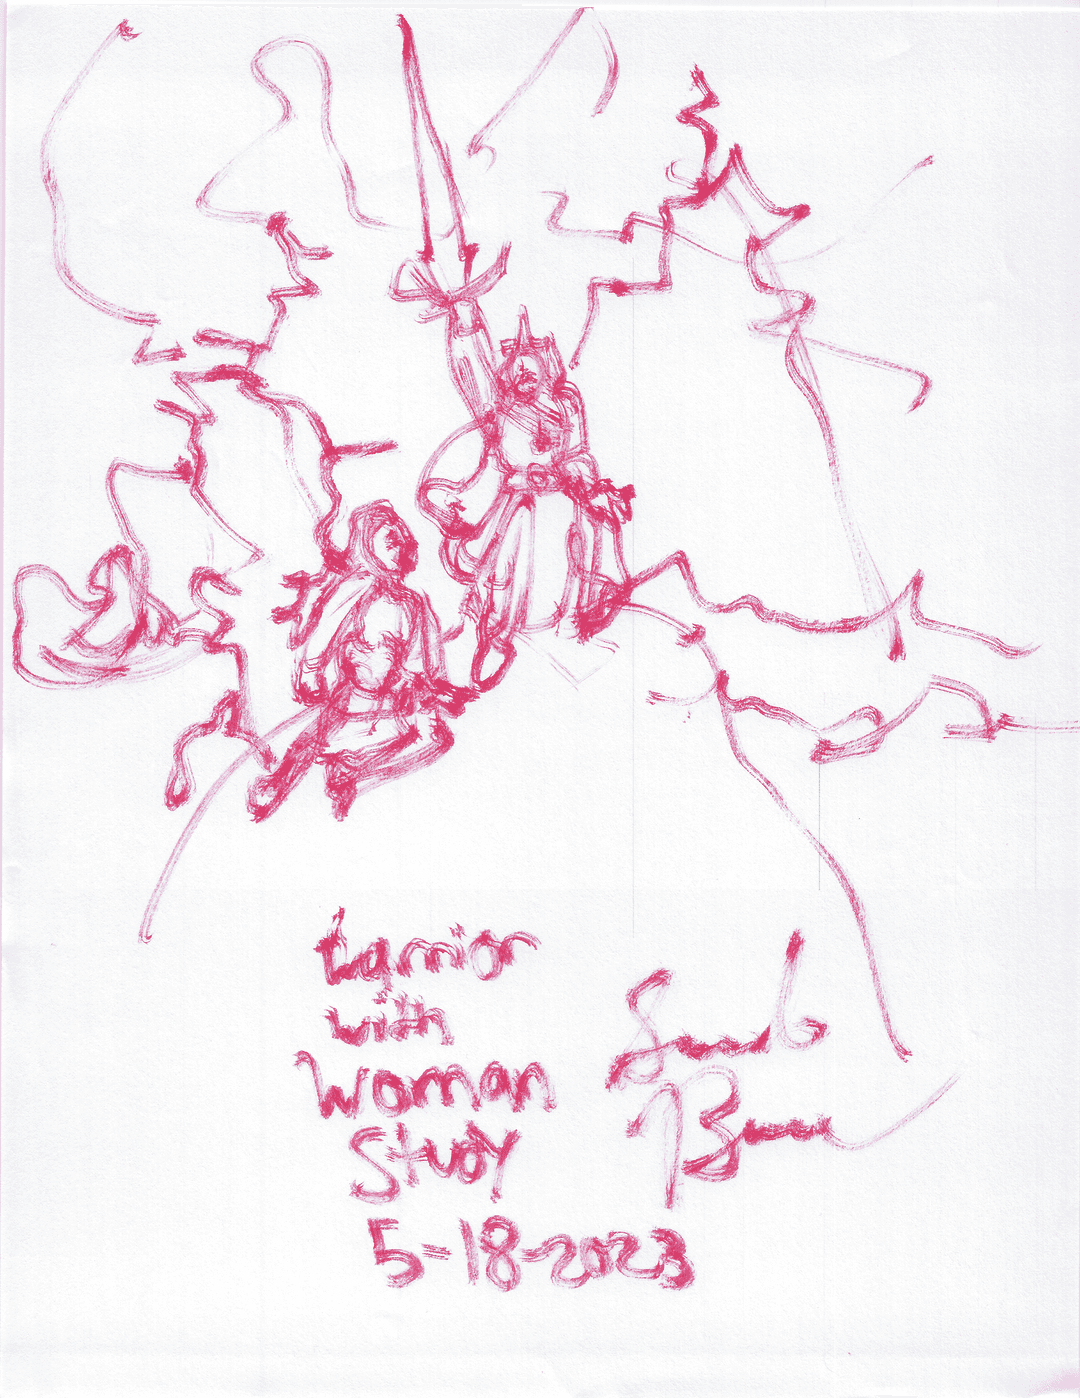 Warrior
with
Woman
Study
5-18-2023